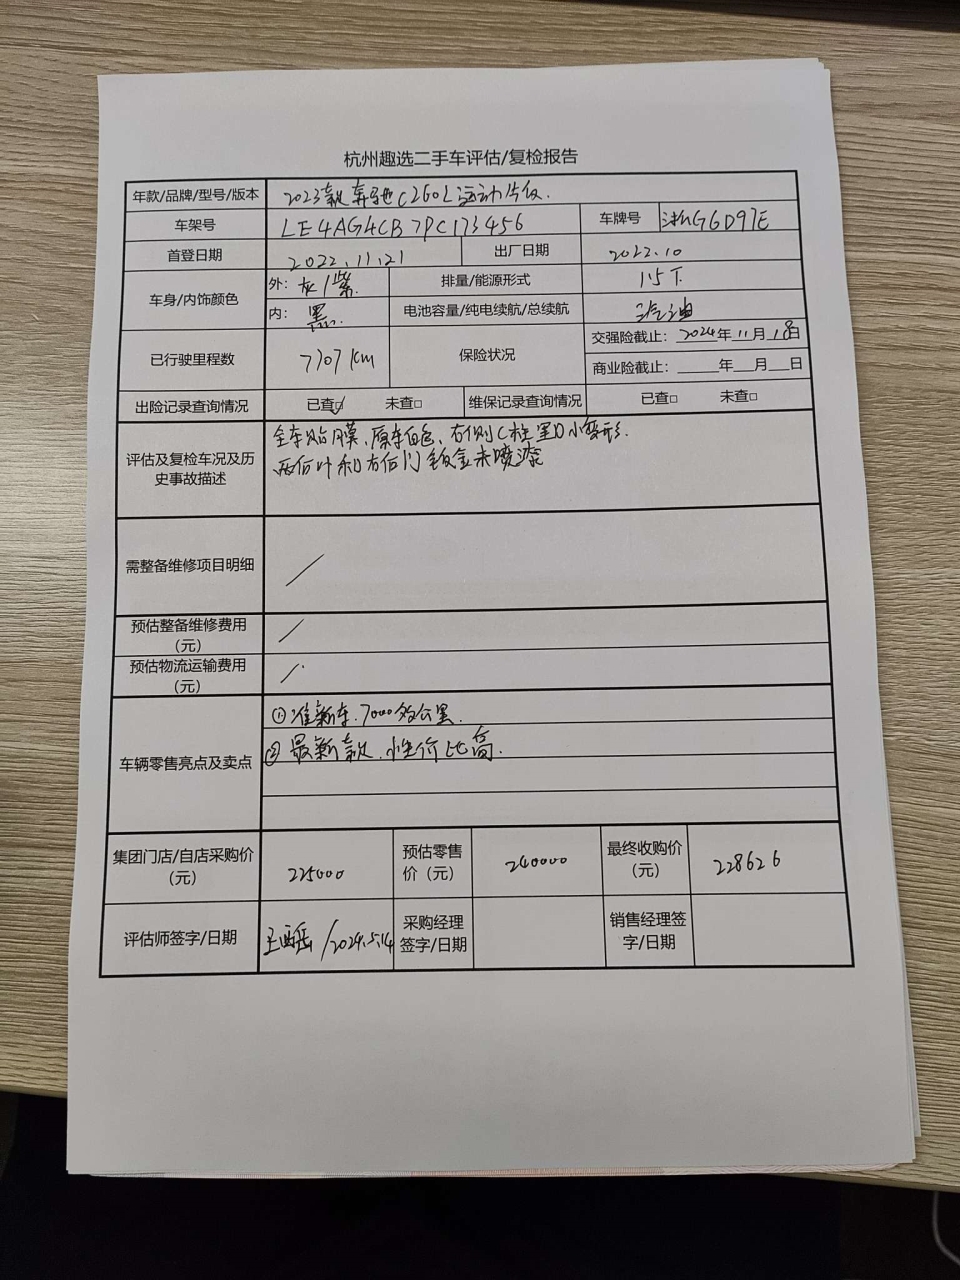 杭州趣选二手车评估/复检报告
年款/品牌/型号/版本 2023款 奔驰C260L运动片仅.
车架号 LE4AG4CB7PC173456 车牌号 浙G6D97E
首登日期 2022.11.21 出厂日期 2022.10
车身/内饰颜色 外: 灰/紫. 排量/能源形式 1.5T.
内: 黑. 电池容量/纯电续航/总续航 汽油
已行驶里程数 7707km 保险状况 交强险截止: 2024年11月18日
商业险截止: 年 月 日
出险记录查询情况 已查☑ 未查□ 维保记录查询情况 已查□ 未查□
评估及复检车况及历史事故描述 全车贴膜、原车白色、右侧C柱里口小变形.
两后叶和右后门钣金未喷漆
需整备维修项目明细 /
预估整备维修费用(元) /
预估物流运输费用(元) /
车辆零售亮点及卖点 ①准新车.7000多公里.
②最新款.性价比高.
集团门店/自店采购价(元) 225000 预估零售价(元) 240000 最终收购价(元) 228626
评估师签字/日期 /2024.5.14 采购经理签字/日期 销售经理签字/日期